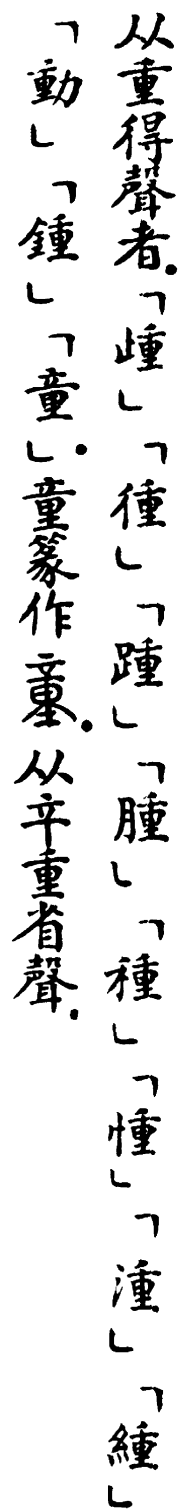 从重得聲者．「歱」「徸」「踵」「腫」「種」「憧」「湩」「緟」
「動」「鍾」「童」．童篆作𥫍．从䇂重省聲．